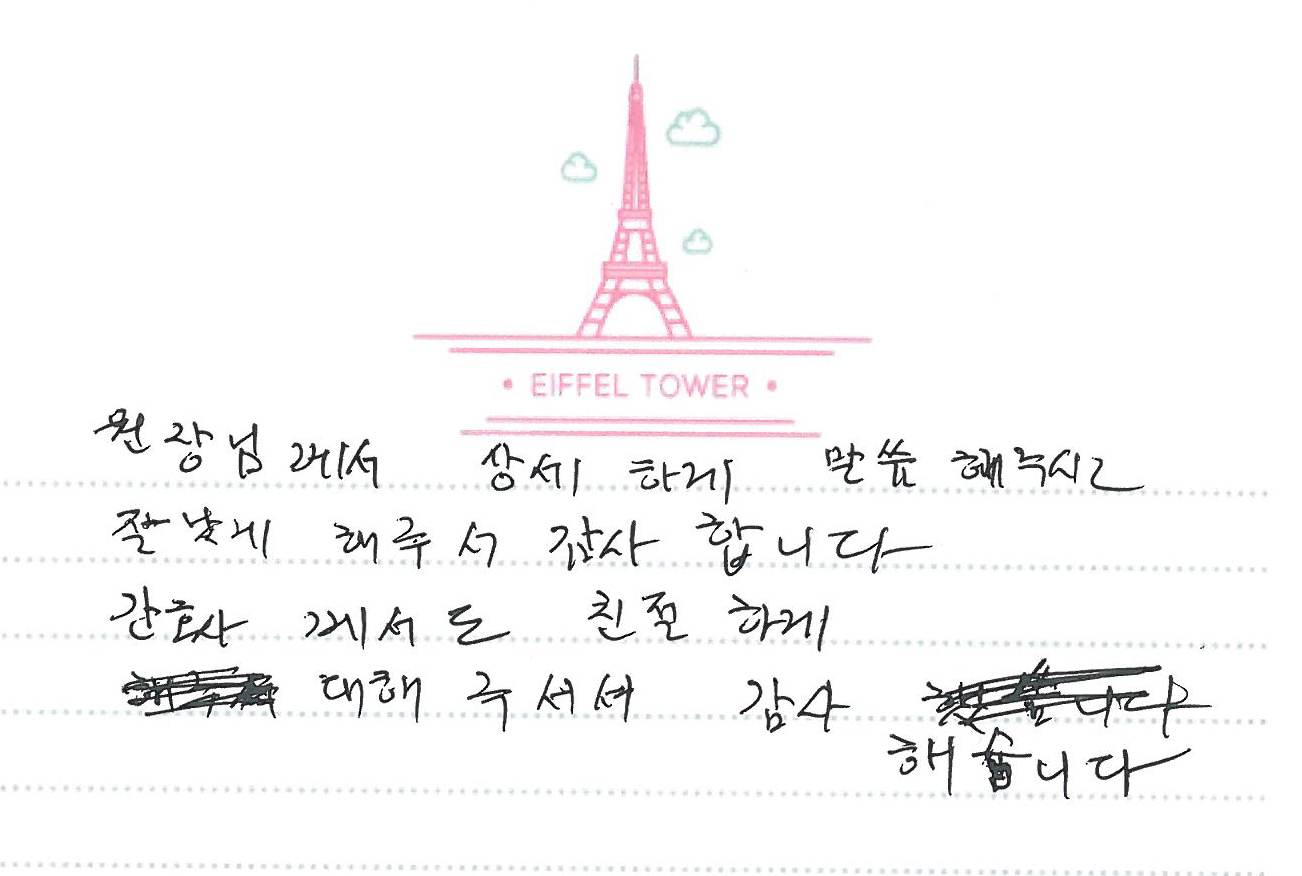 EIFFEL TOWER
원장님 께서 상세 하게 말씀 해주시고
잘낳게 해주서 감사 합니다
간호사 께서도 친절 하게
대해 주서서 감사
해습니다